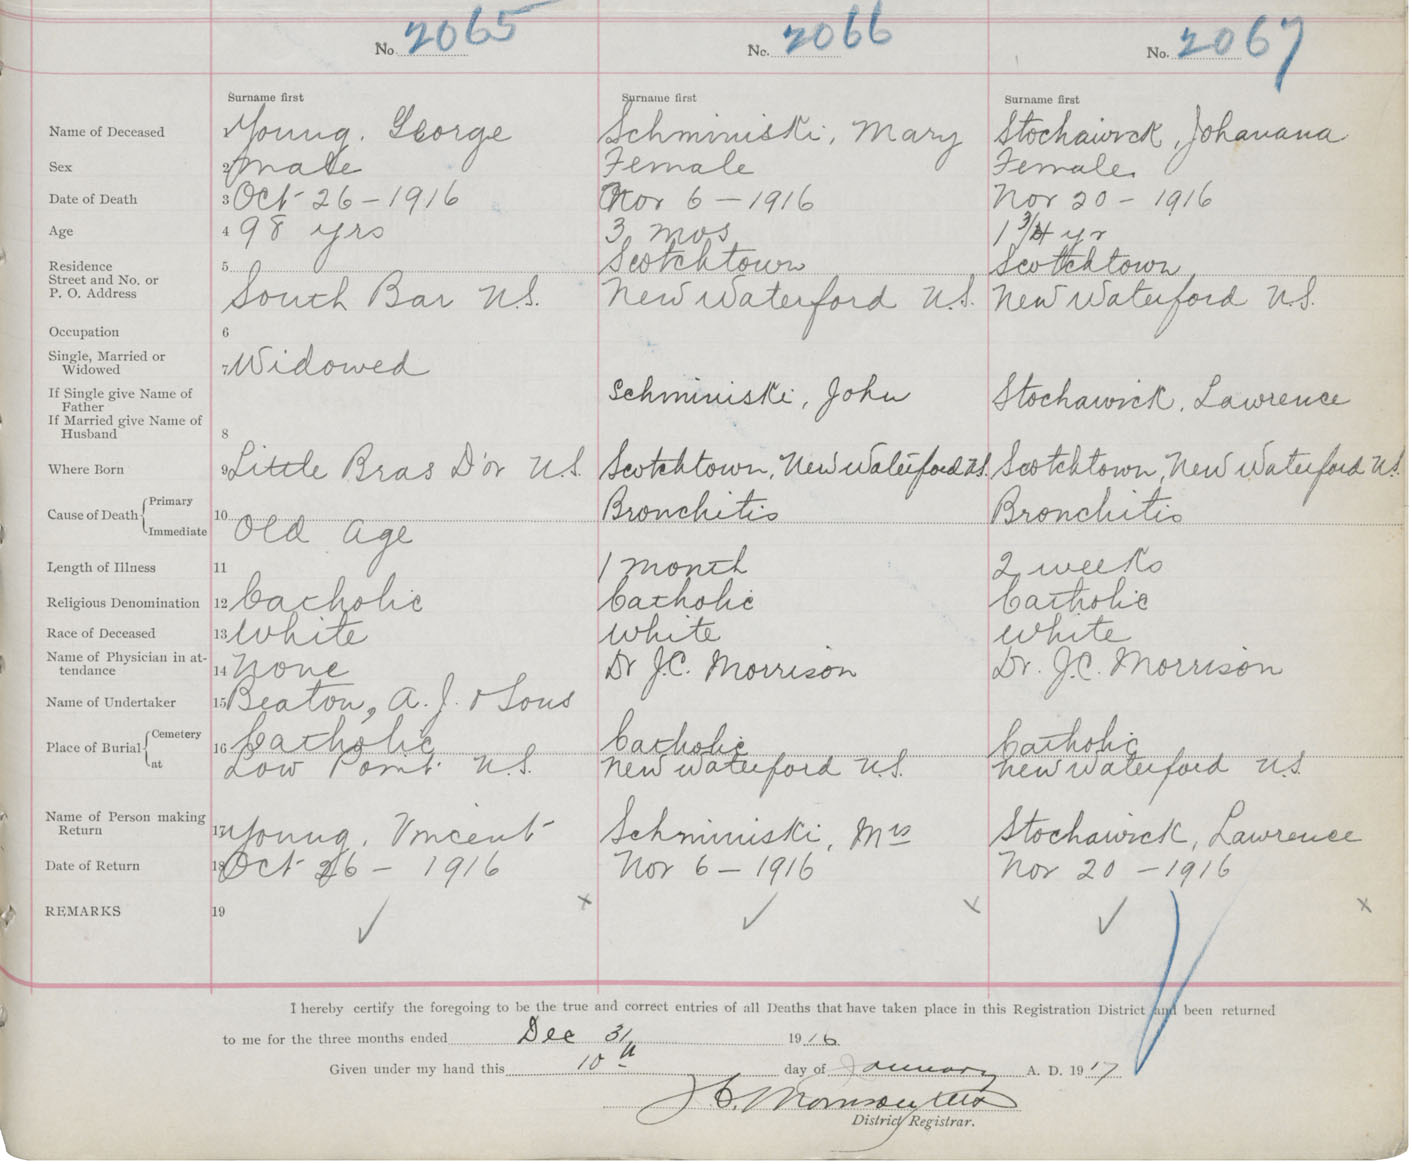 No. 2065 No. 2066 No. 2067
Surname first Surname first Surname first
Name of Deceased Young, George Schminiski, Mary Stochawick, Johanana
Sex 2 Male Female Female
Date of Death 3 Oct 26 - 1916 Nov 6 - 1916 Nov 20 - 1916
Age 4 98 yrs 3 mos 1 3/4 yr
Residence 5 Scotchtown Scotchtown
Street and No. or
P. O. Address South Bar N.S. New Waterford N.S. New Waterford N.S.
Occupation 6
Single, Married or
Widowed 7 Widowed
If Single give Name of
Father Schminiski, John Stochawick, Lawrence
If Married give Name of
Husband 8
Where Born 9 Little Bras D'or N.S. Scotchtown, New Waterford N.S. Scotchtown, New Waterford N.S.
Cause of Death Primary 10 Bronchitis Bronchitis
Immediate Old Age
Length of Illness 11 1 month 2 weeks
Religious Denomination 12 Catholic Catholic Catholic
Race of Deceased 13 White White White
Name of Physician in at-
tendance 14 None Dr J.C. Morrison Dr. J.C. Morrison
Name of Undertaker 15 Beaton, A. J. & Sons
Place of Burial Cemetery 16 Catholic Catholic Catholic
at Low Point N.S. New Waterford N.S. New Waterford N.S.
Name of Person making
Return 17 Young, Vincent Schminiski, Mrs Stochawick, Lawrence
Date of Return 18 Oct 26 - 1916 Nov 6 - 1916 Nov 20 - 1916
REMARKS 19
I hereby certify the foregoing to be the true and correct entries of all Deaths that have taken place in this Registration District and been returned
to me for the three months ended Dec 31 1916
Given under my hand this 10th day of January A. D. 1917
J C. Morrison
District Registrar.